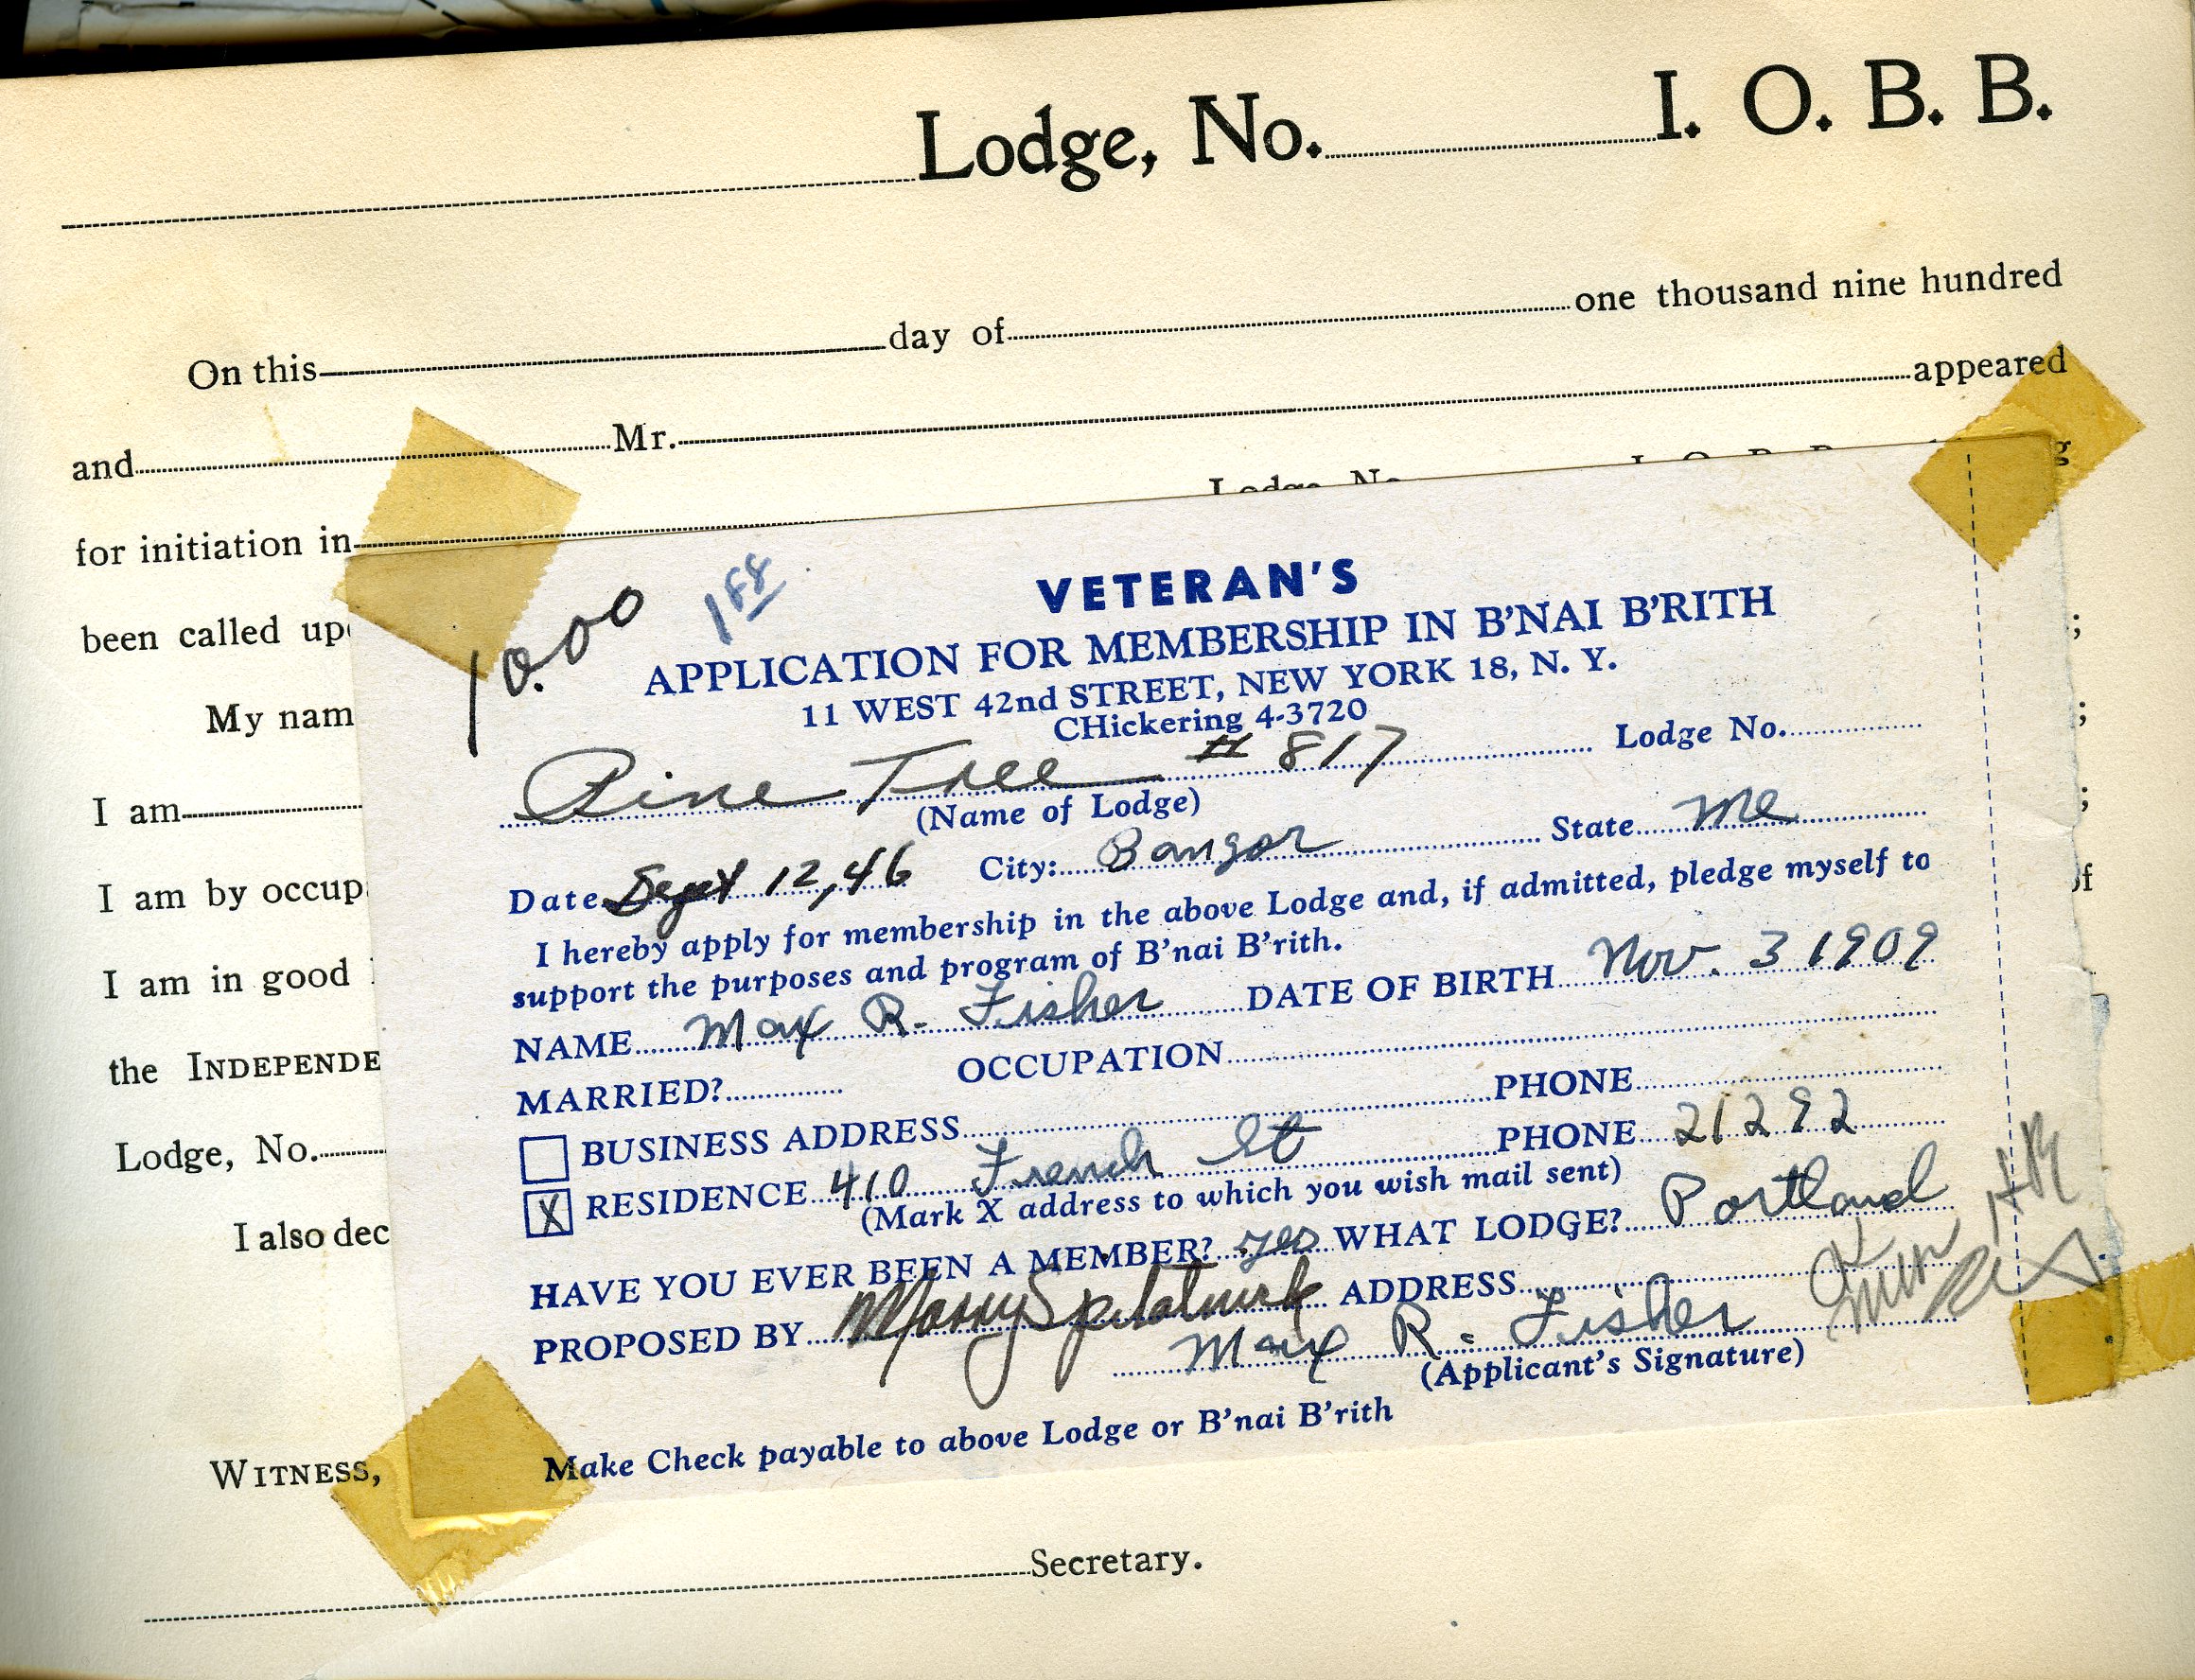 Lodge, No. I. O. B. B.
On this day of one thousand nine hundred
and Mr. appeared
for initiation in Lodge No
been called up
;
My nam
;
I am
;
I am by occup
of
I am in good
the INDEPENDE
Lodge, No.
I also dec
WITNESS,
Secretary.
10.00
VETERAN'S
APPLICATION FOR MEMBERSHIP IN B'NAI B'RITH
11 WEST 42nd STREET, NEW YORK 18, N. Y.
CHickering 4-3720
Pine Tree # 817 Lodge No.
(Name of Lodge)
Date Sept 12, 46 City: Bangor State Me
I hereby apply for membership in the above Lodge and, if admitted, pledge myself to
support the purposes and program of B'nai B'rith.
NAME Max R. Fisher DATE OF BIRTH Nov. 3 1909
MARRIED? OCCUPATION
BUSINESS ADDRESS PHONE
X RESIDENCE 410 French St PHONE 21292
(Mark X address to which you wish mail sent)
HAVE YOU EVER BEEN A MEMBER? yes WHAT LODGE? Portland
PROPOSED BY ADDRESS
Max R. Fisher
(Applicant's Signature)
Make Check payable to above Lodge or B'nai B'rith